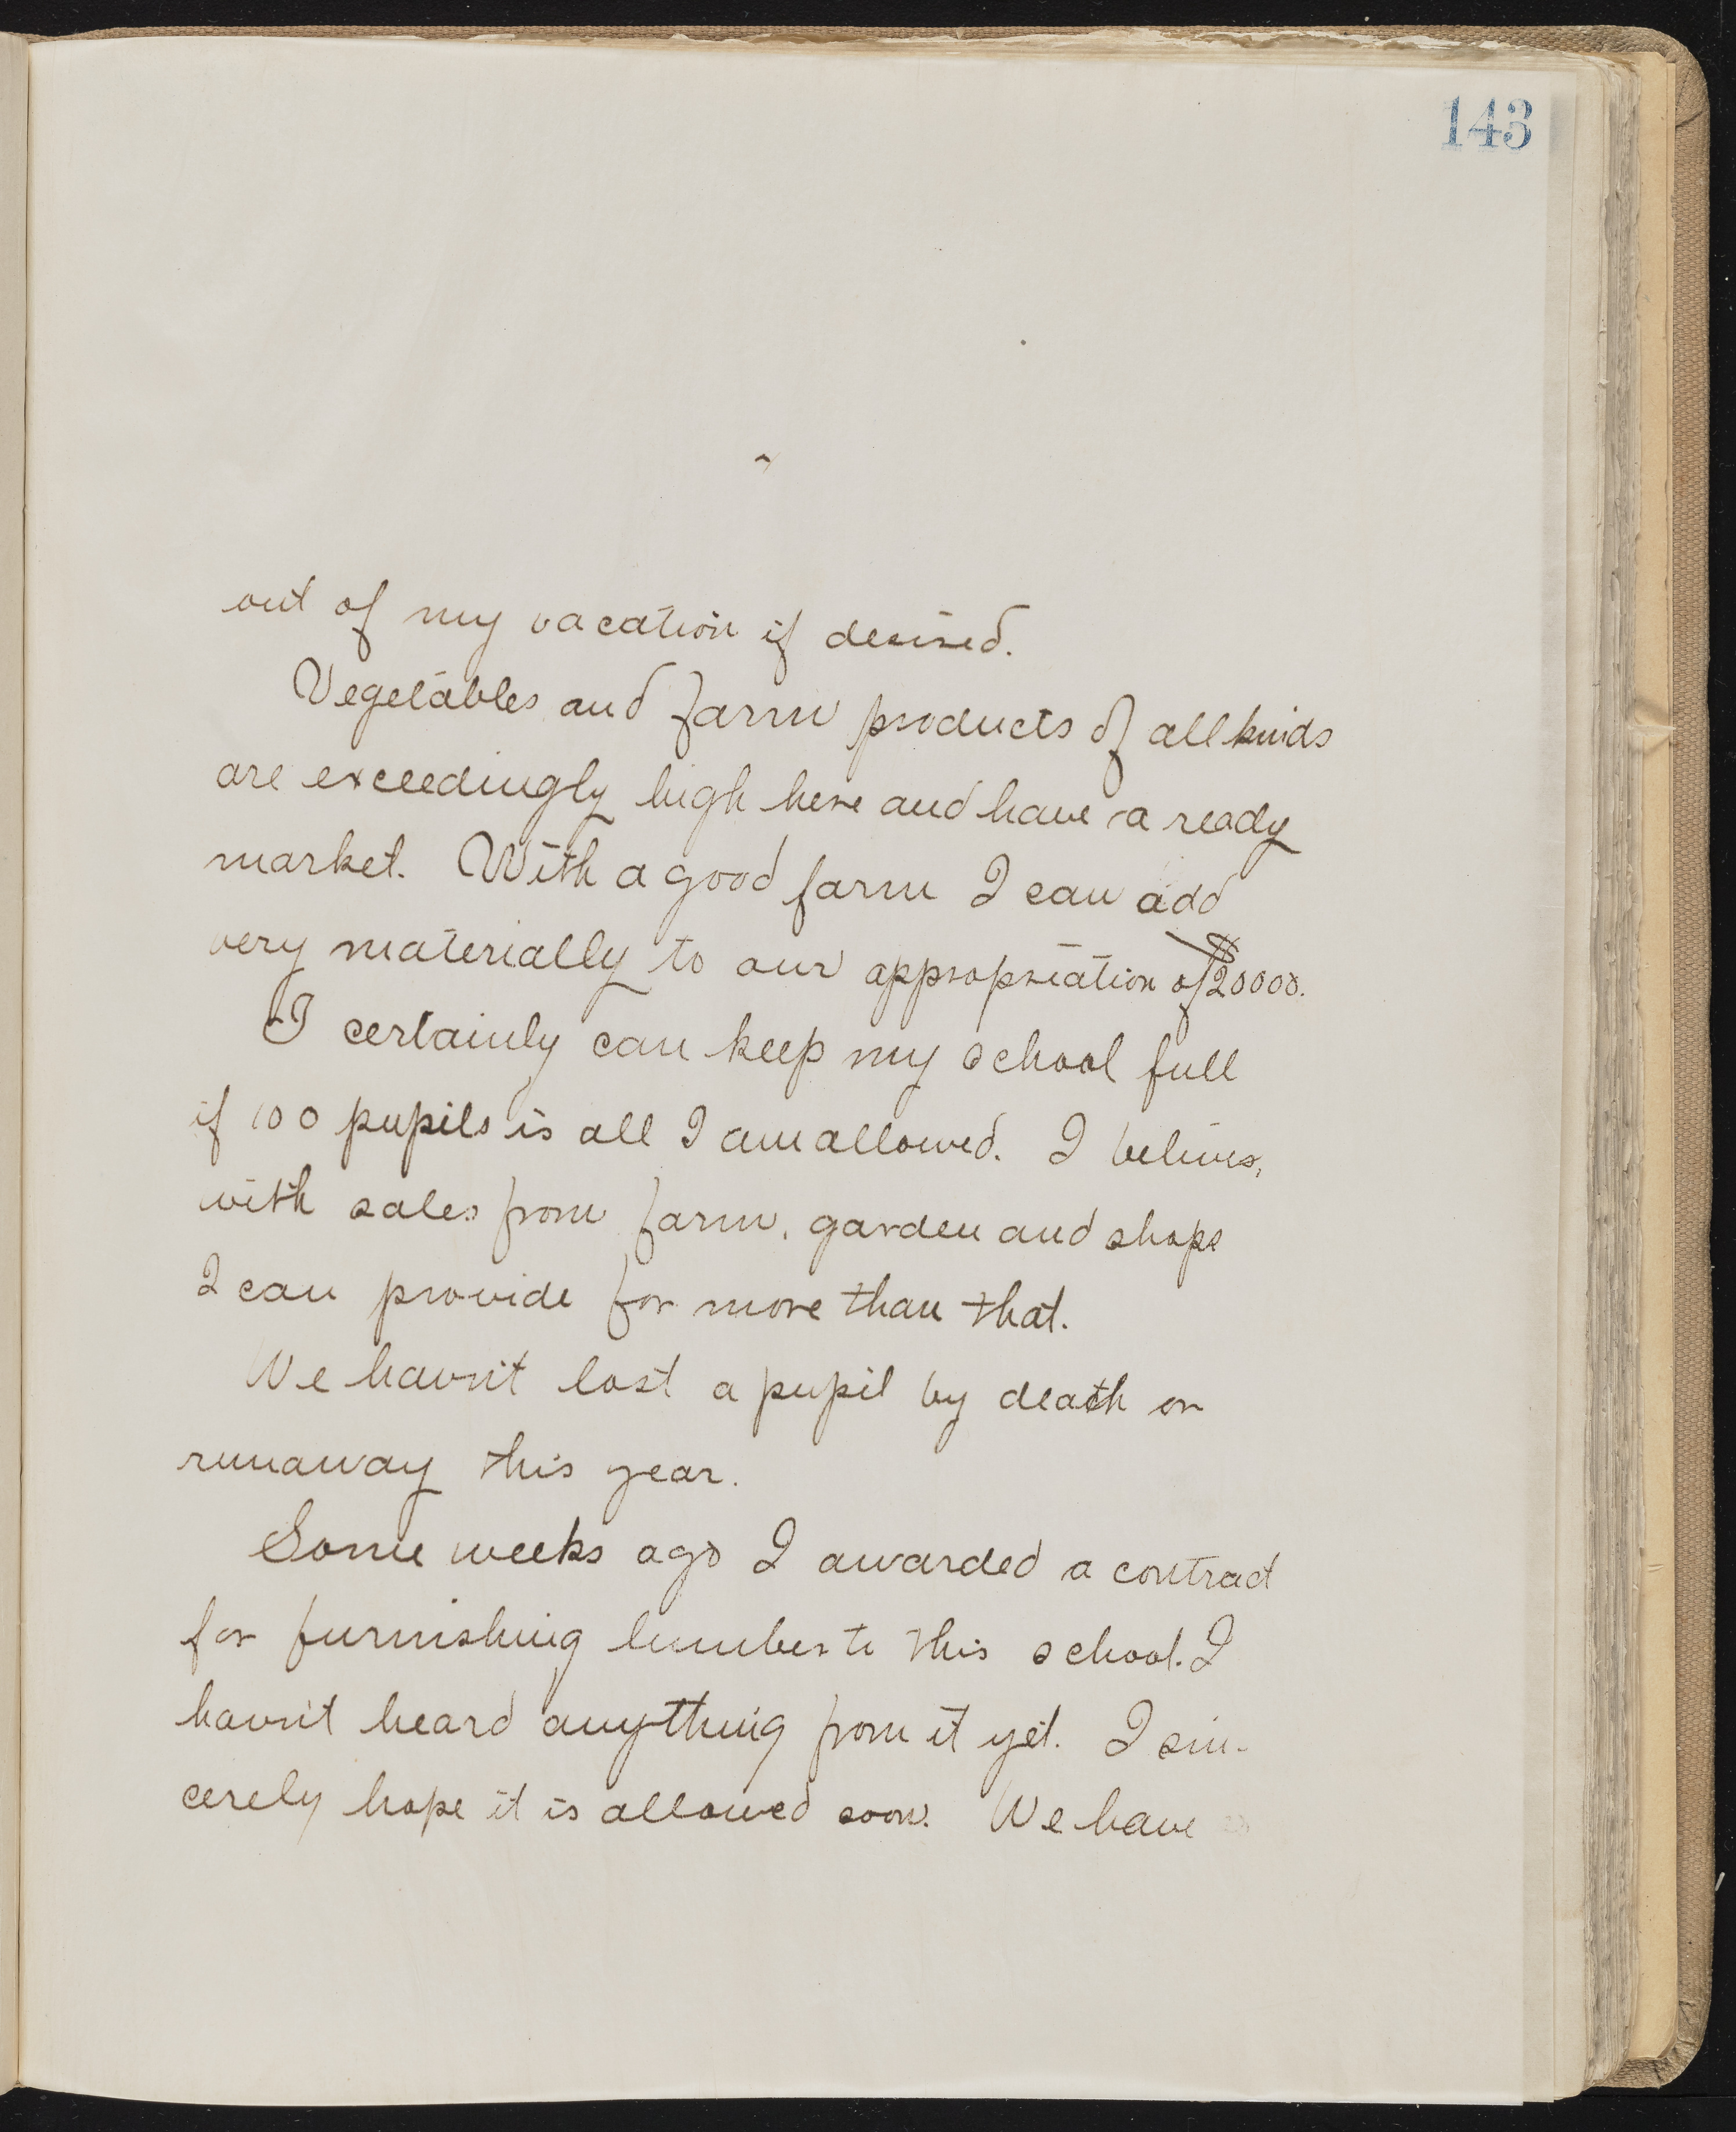 143
out of my vacation if desired.
Vegetables and farm products of all kinds
are exceedingly high here and have a ready
market. With a good farm I can add
very materially to our appropriation of $20000.
I certainly can keep my school full
if 100 pupils is all I am allowed. I believe,
with sales from farm, garden and shops
I can provide for more than that.
We havn't lost a pupil by death or
runaway this year.
Some weeks ago I awarded a contract
for furnishing lumber to this school. I
havn't heard anything from it yet. I sin-
cerely hope it is allowed soon. We have